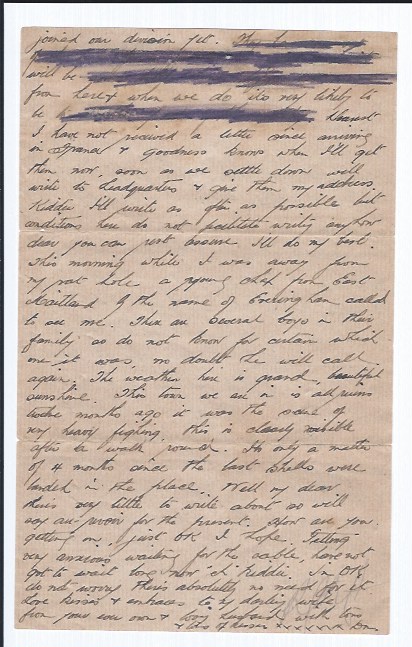 joined our division yet.
will be
from here & when we do its very likely to
be Dearest
I have not received a letter since arriving
in France & Goodness knows when I'll get
them now, soon as we settle down will
write to headquarters & give them my address.
Kiddie I'll write as often as possible but
conditions here do not facilitate writing anyhow
dear you can rest assure I'll do my best.
This morning while I was away from
my a young chap from East
Maitland by the name of called
to see me. There are several boys in their
family so do not know for certain which
one it was, no doubt he will call
again. The weather here is grand, beautiful
sunshine. This town we are in is all ruins
twelve months ago it was the scene of
very heavy fighting, this is clearly visible
after a walk round. Its only a matter
of 4 months since the last shells were
landed in the place. Well my dear
theirs very little to write about so will
say au revoir for the present. How are you
getting on, just OK I hope. Getting
very anxious waiting for the cable, have not
got to wait long now Kiddie. Im OK
do not worry theirs absolutely no need for it
Love kisses & embraces to my darling wife
from your own & loving husband with tons
& tons of kisses xxxxxxx